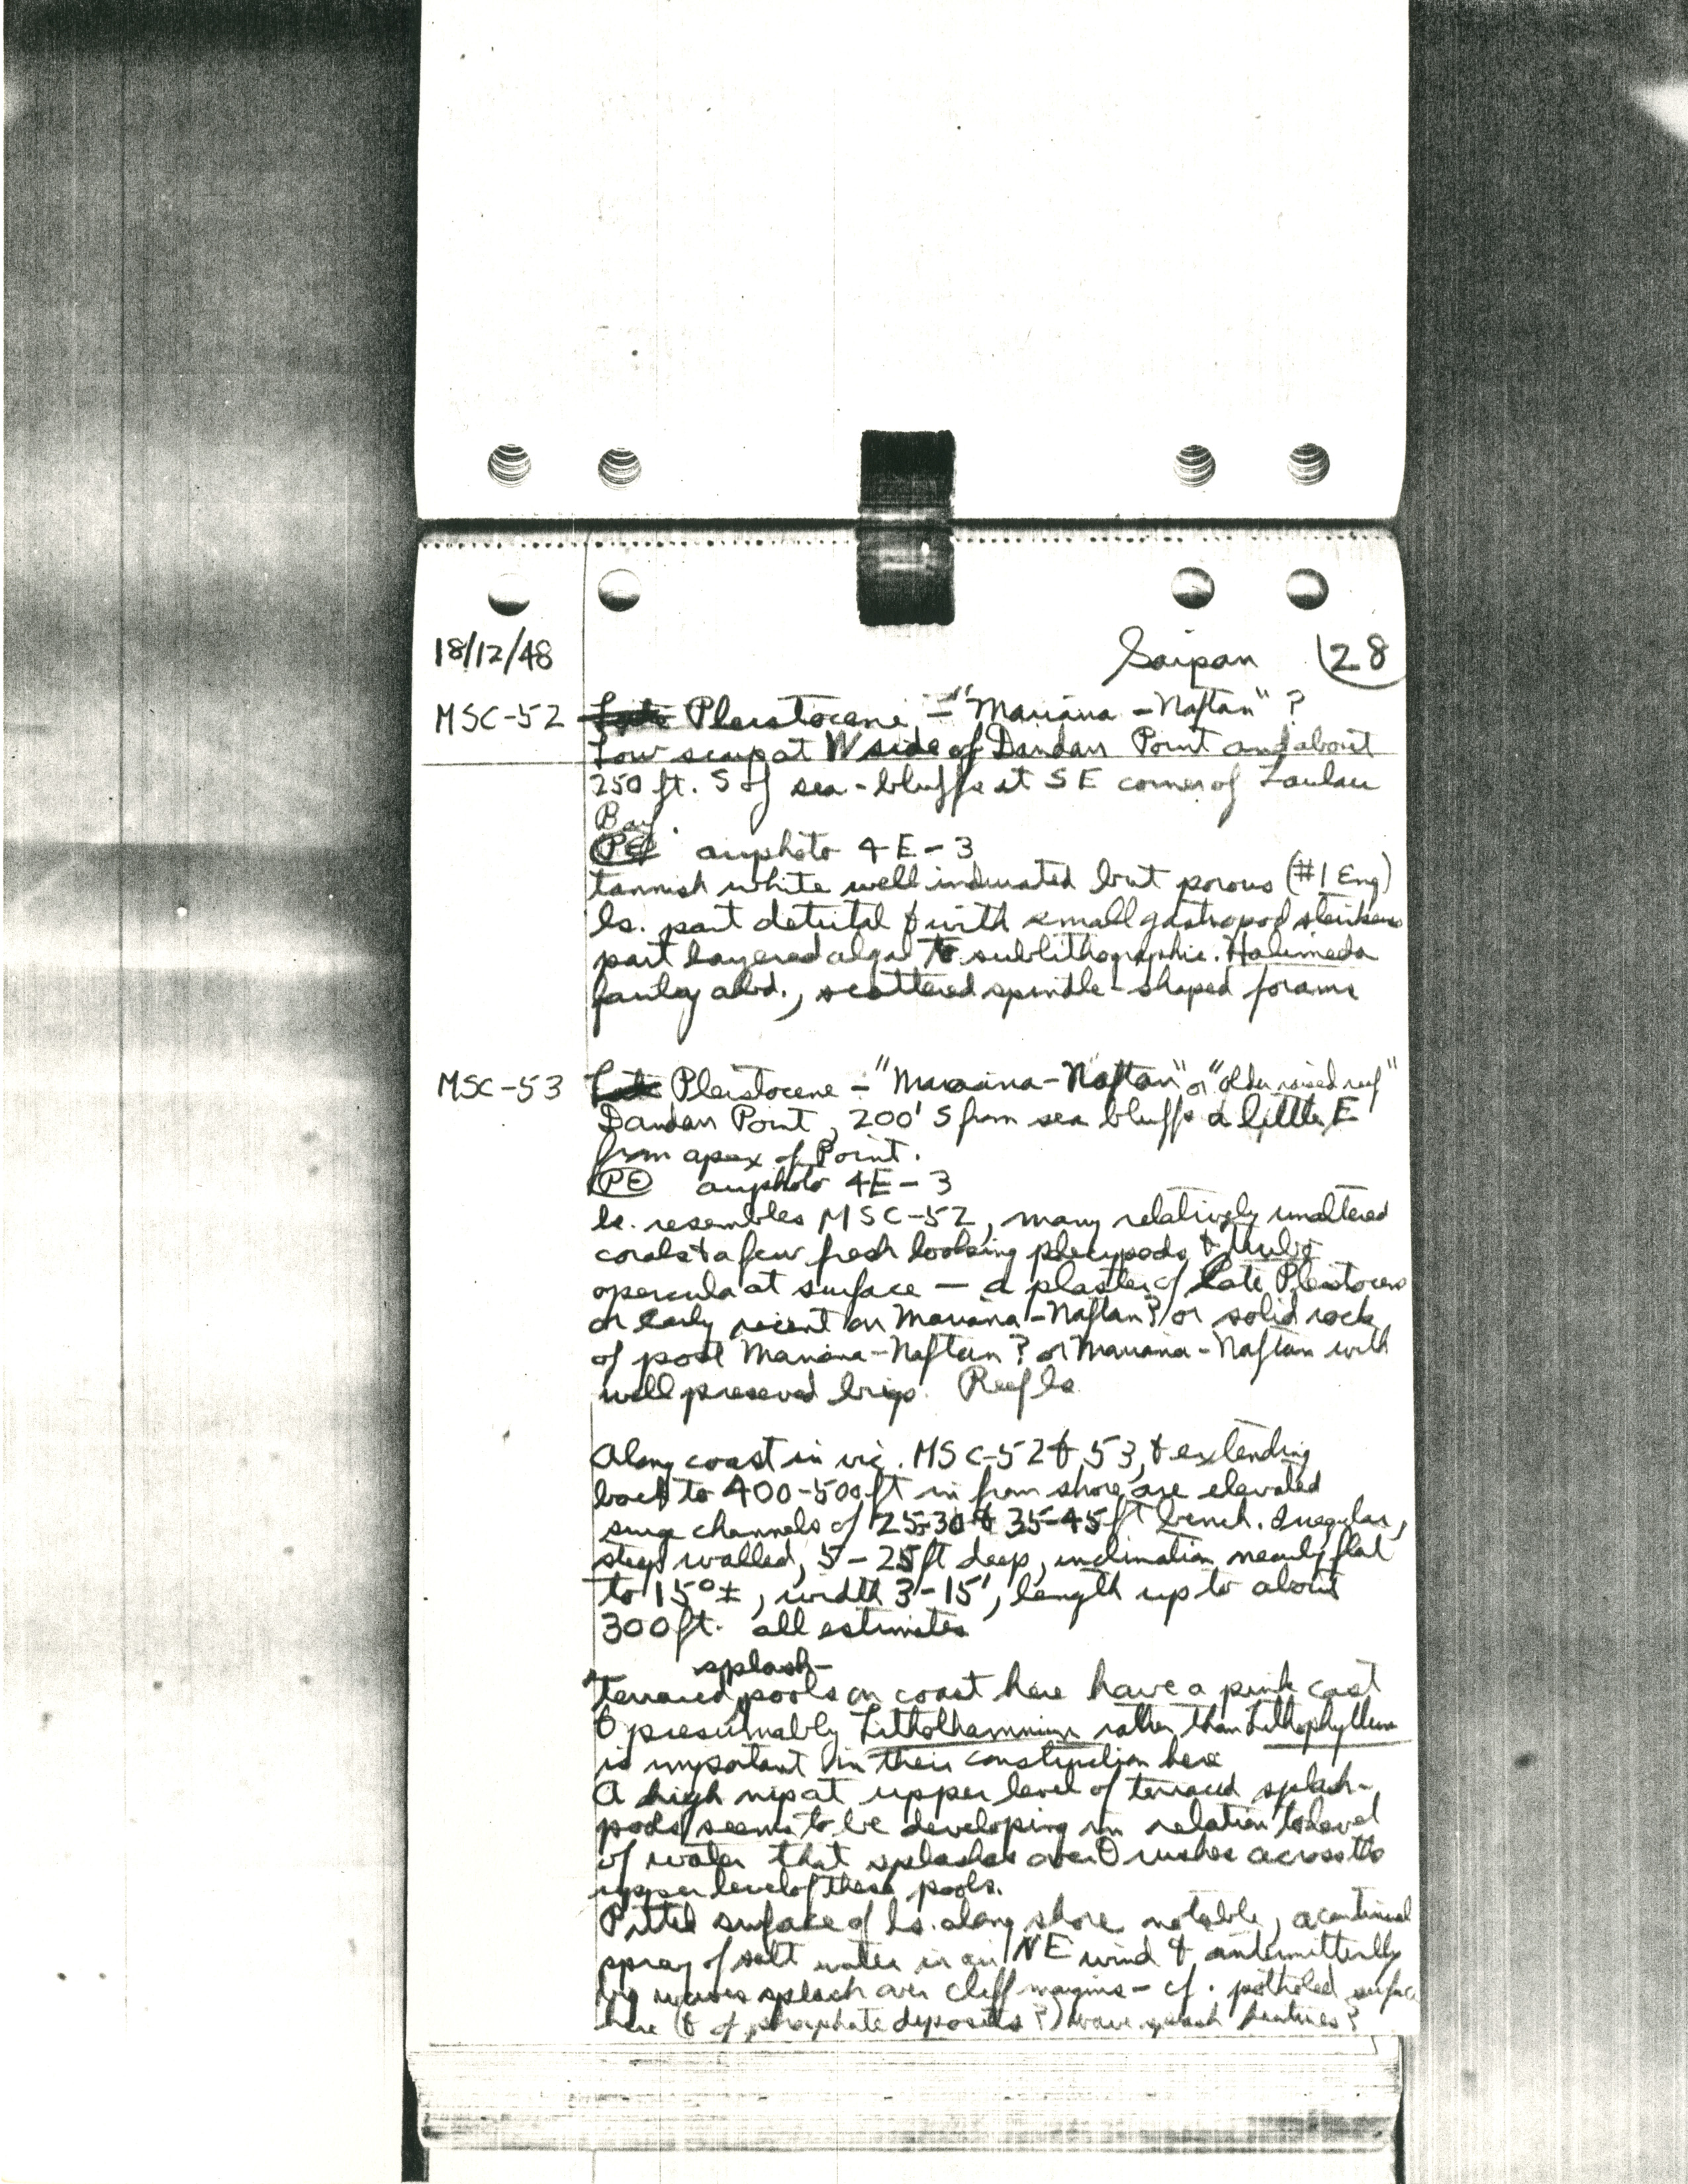 18/12/48 Saipan 28
MSC-52 Late Pleistocene - "Mariana - Naftan" ?
Low scarp at W side of Dandan Point and about
250 ft. S of sea-bluffs at SE corner of Laulau
Bay.
airphoto 4E-3
tannish white well indurated but porous (#1 Eng)
ls. part detrital & with small gastropod steinkerns
part layered algal to sublithographic. Halimeda
fairly abd., scattered spindle-shaped forams
MSC-53 Late Pleistocene - "Mariana-Naftan" or "older raised reef"
Dandan Point, 200' S from sea bluffs a little E
from apex of Point.
airphoto 4E-3
ls. resembles MSC-52, many relatively unaltered
corals & a few fresh looking pelecypods & Turbo
opercula at surface — a plaster of Late Pleistocene
or early recent on Mariana-Naftan? or solid rock
of post Mariana-Naftan? or Mariana-Naftan with
well preseved Reef ls
Along coast in vic. MSC-52 & 53, & extending
back to 400-500 ft in from shore are elevated
surge channels of 25-30 & 35-45 ft bench. Irregular,
steep walled, 5-25 ft deep, inclination nearly flat
to 15° ±, width 3-15', length up to about
300 ft. all estimates
splash-
Terraced pools on coast here have a pink cast
& presumably Lithothamnium rather than Lithophyllum
is important in their construction here
A high nip at upper level of terraced splash-
pools seems to be developing in relation to level
of water that splashes over & rushes across the
upper level of these pools.
Pitted surface of ls. along shore notable, a continual
spray of salt water in air NE wind & intermittently
big waves splash over cliff margins - cf. potholed surface
here (& of phosphate deposits?) wave splash features?